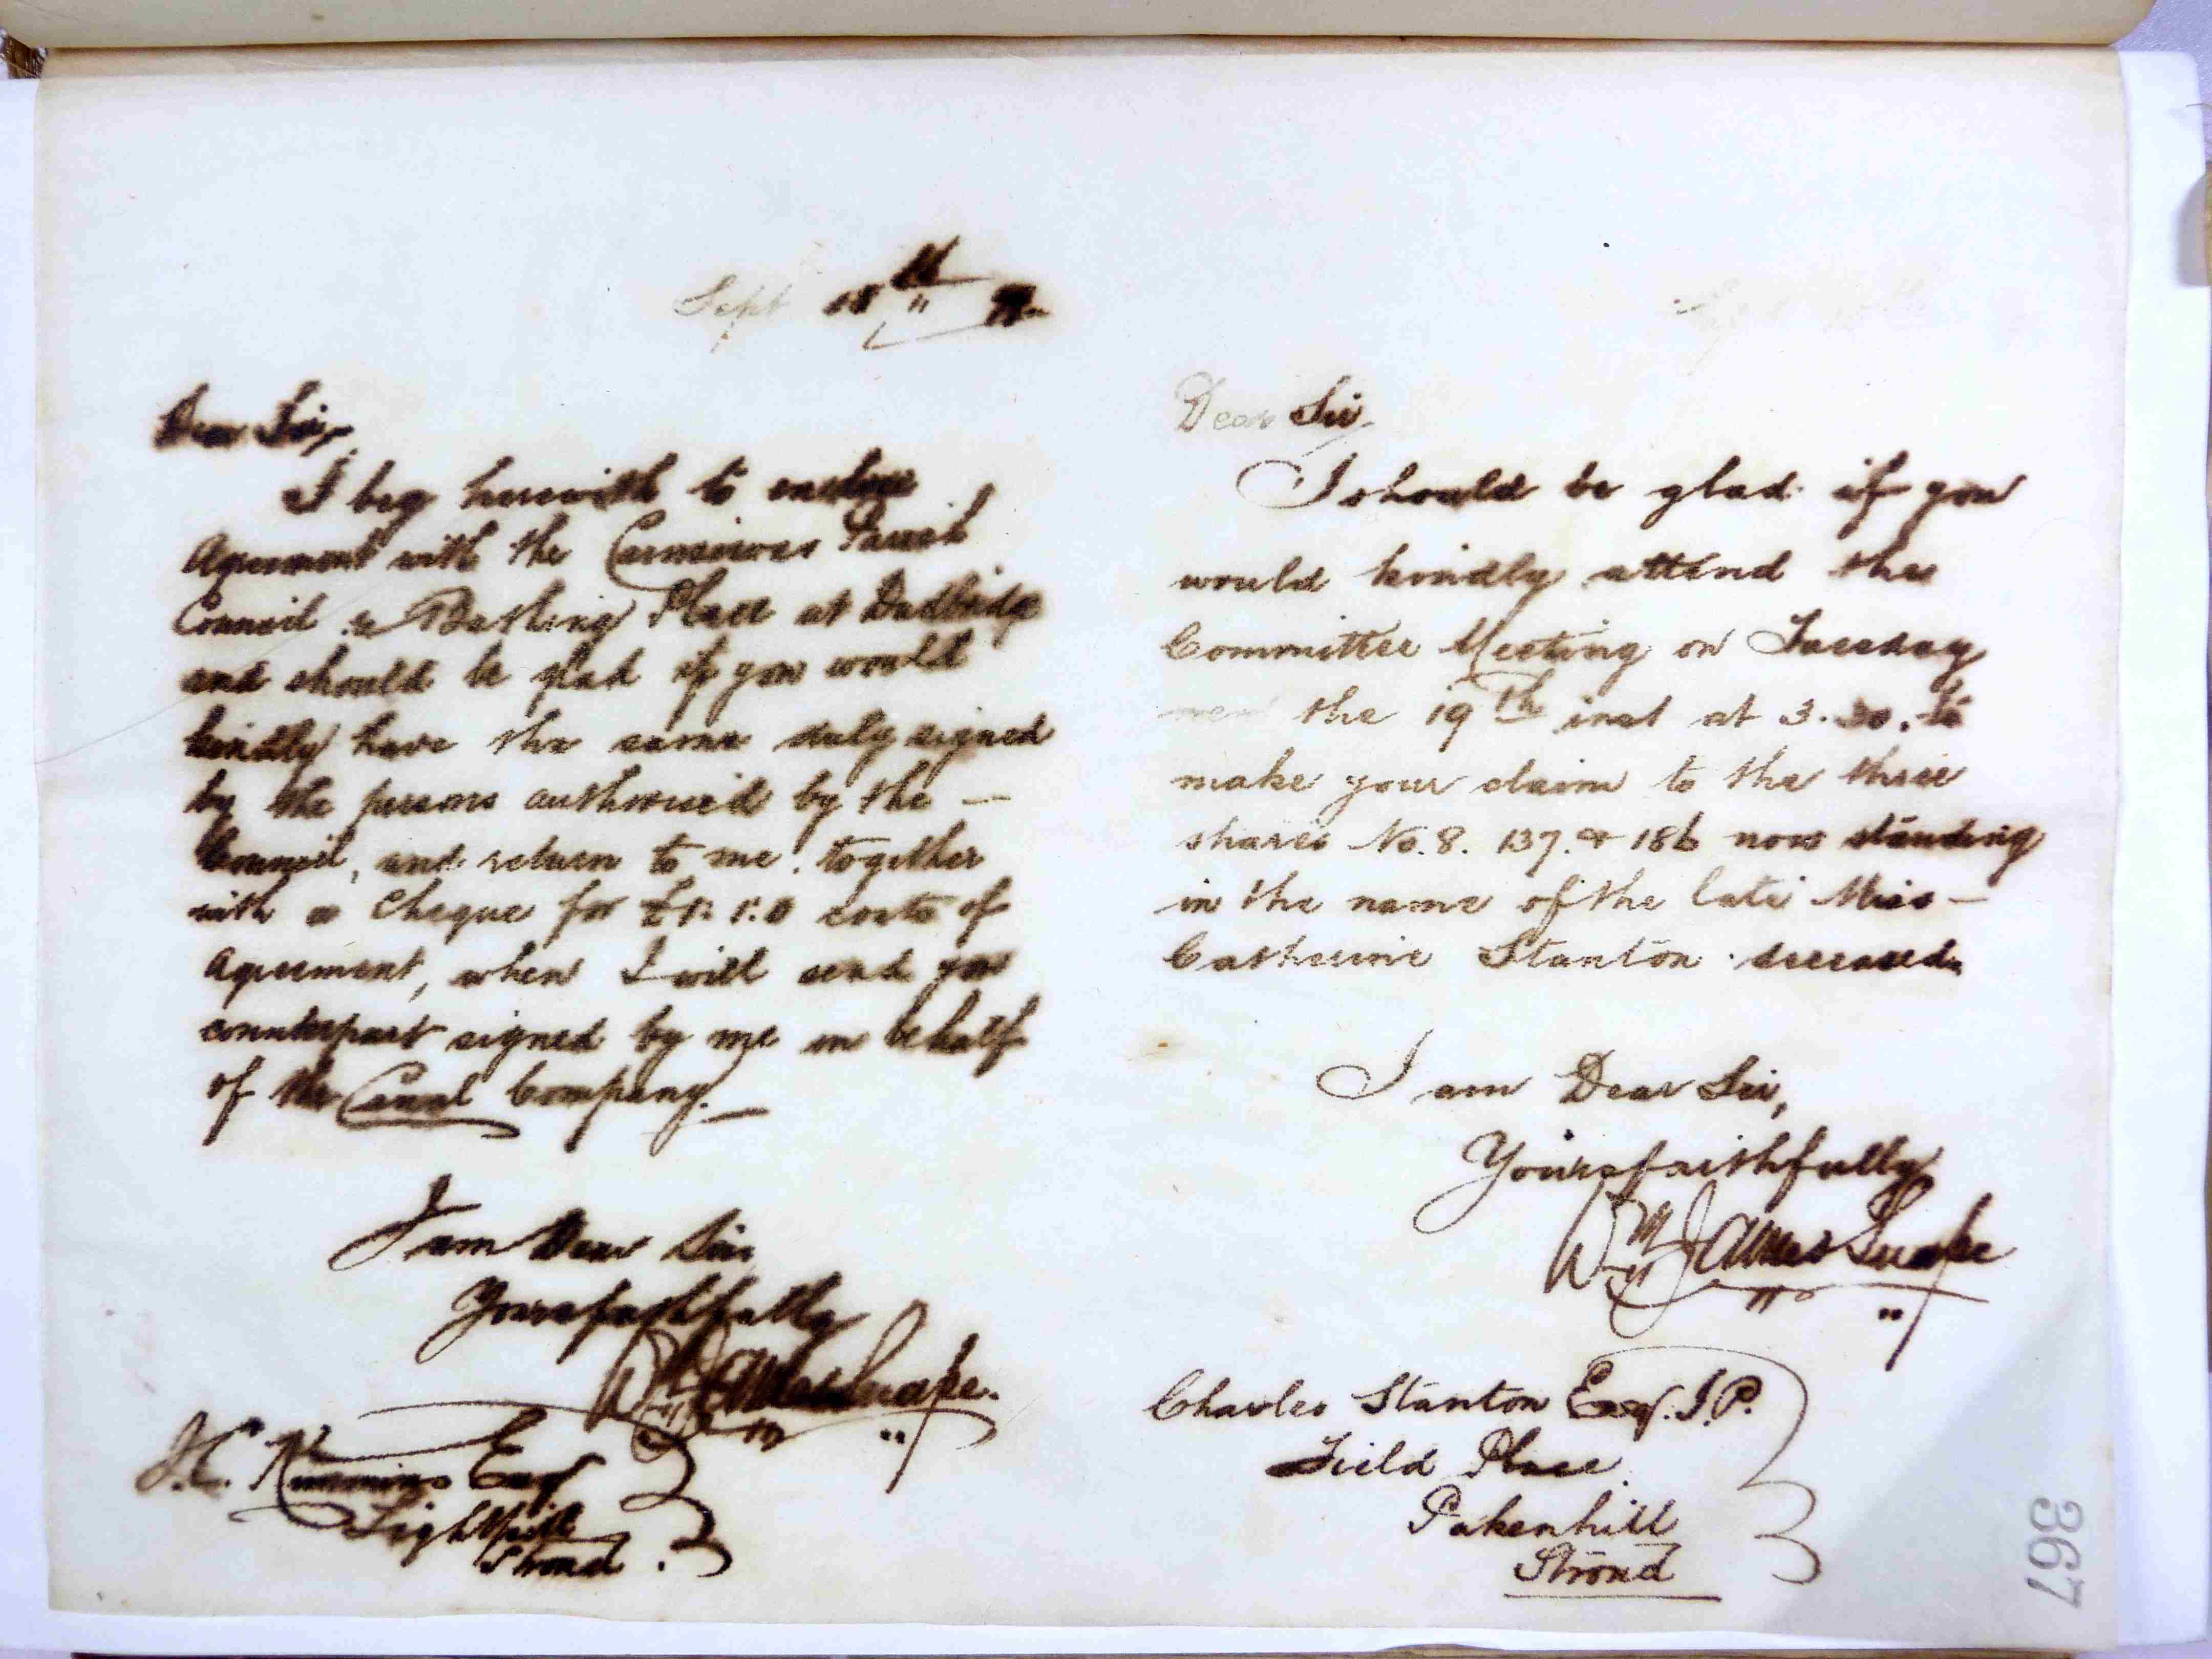 Sept 18th
Dear Sir,
I beg herewith to enclose
Agreement with the Parish
Council re Bathing Place at Dudbridge
and should be glad if you would
kindly have the same duly signed
by the persons authorised by the —
Council, and return to me, together
with a Cheque for £1. 1. 0 costs of
Agreement, when I will send you
counterpart signed by me on behalf
of the Canal Company. —
I am Dear Sir
Yours faithfully
Wm James Snape.
J.C. Kimmins Esq
Lightpill
Stroud.
Dear Sir.
I should be glad if you
would kindly attend the
Committee Meeting on Tuesday
the 19th inst at 3.30. to
make your claim to the three
shares No. 8. 137. & 186 now standing
in the name of the late Miss —
Catherine Stanton deceased.
I am Dear Sir,
Yours faithfully
Wm James Snape
Charles Stanton Esq. J.P.
Field Place.
Pakenhill
Stroud
367